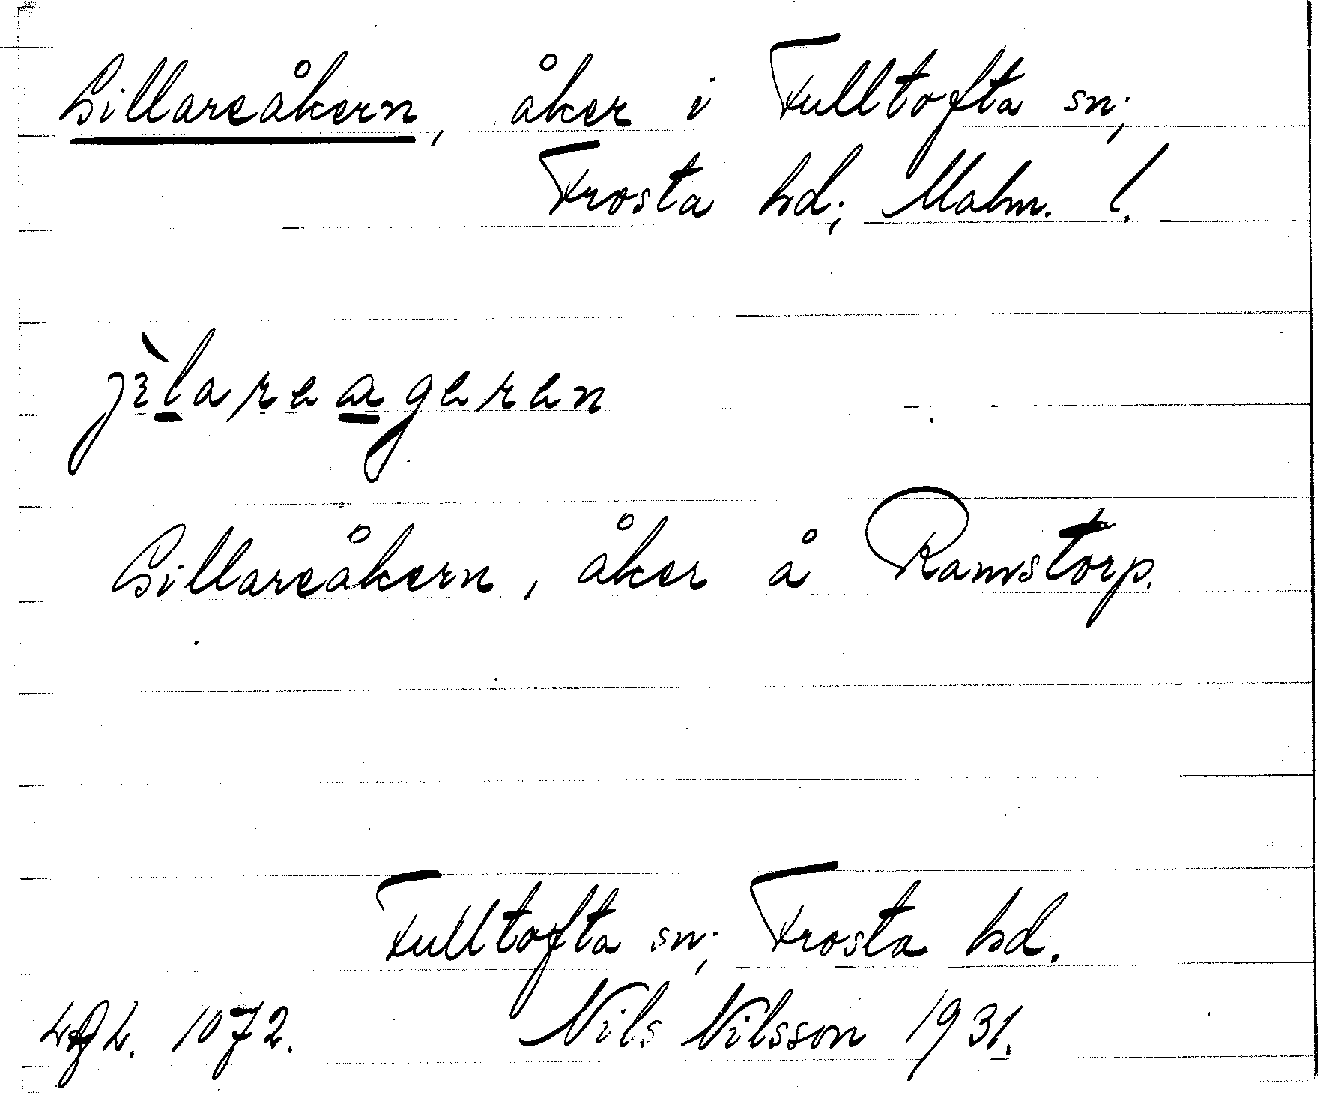 Gillareåkern, åker i Fulltofta sn;
Frosta hd; Malm. l.
jìlareageren
Gillareåkern, åker å Ramstorp.
Fulltofta sn; Frosta hd.
1072. Nils Nilsson 1931.